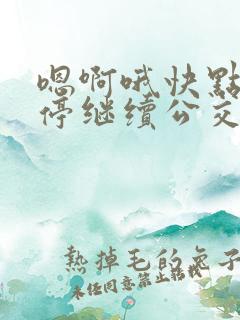 嗯啊哦快點
停继續公交
熱掉毛的兔子
未经同意禁止转载